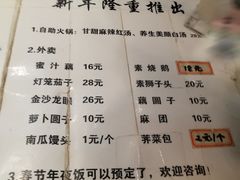 新年隆重推出
1.自助火锅：甘甜麻辣红汤、养生美颜白汤 28元
2.外卖
蜜汁藕 16元 素烧鹅 18元
灯笼茄子 28元 素狮子头 20元
金沙龙 26元 藕圆子 10元
萝卜圆子 10元 麻团 10元
南瓜馒头 1元/个 荠菜包 2元/个
3.春节年夜饭可以预定了，欢迎咨询！